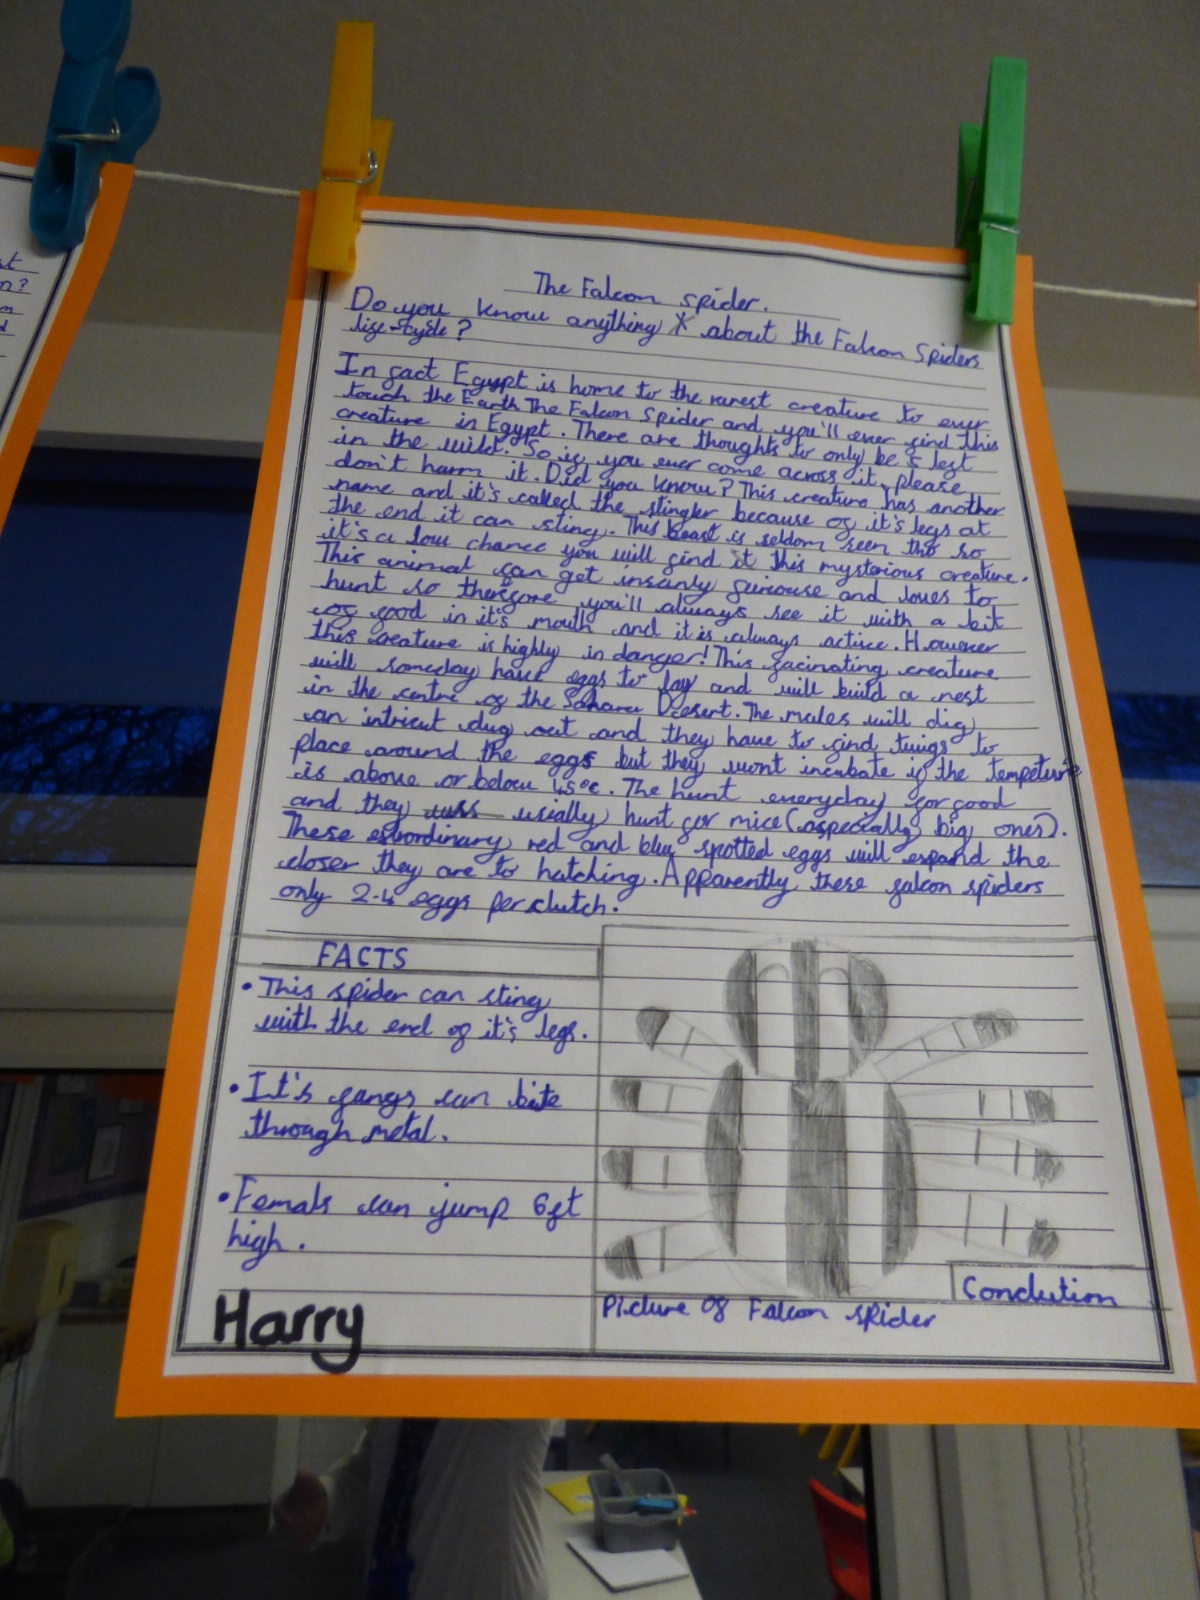 st
n?
The Falcon spider.
Do you know anything about the Falcon Spiders
life-cycle?
In fact Egypt is home to the rarest creature to ever
touch the Earth The Falcon Spider and you'll ever find this
creature in Egypt. There are thoughts to only be 5 left
in the wild. So if you ever come across it, please
don't harm it. Did you know? This creature has another
name and it's called the stingler because of it's legs at
the end it can sting. This beast is seldom seen tho so
it's a low chance you will find it this mysterious creature.
This animal can get insanly furiouse and loves to
hunt so therefore you'll always see it with a bit
of food in it's mouth and it is always active. However
this creature is highly in danger! This facinating creature
will someday have eggs to lay and will build a nest
in the centre of the Sahara Desert. The males will dig
an intricut dug out and they have to find twigs to
place around the eggs but they wont incubate if the tempeture
is above or below 45°c. The hunt everyday for food
and they usially hunt for mice (aspecially big ones).
These extrordinary red and blue spotted eggs will expand the
closer they are to hatching. Apparently these falcon spiders
only 2-4 eggs per clutch.
FACTS
• This spider can sting
with the end of it's legs.
• It's fangs can bite
through metal.
• Femals can jump 6ft
high.
Conclution
Picture of Falcon spider
Harry